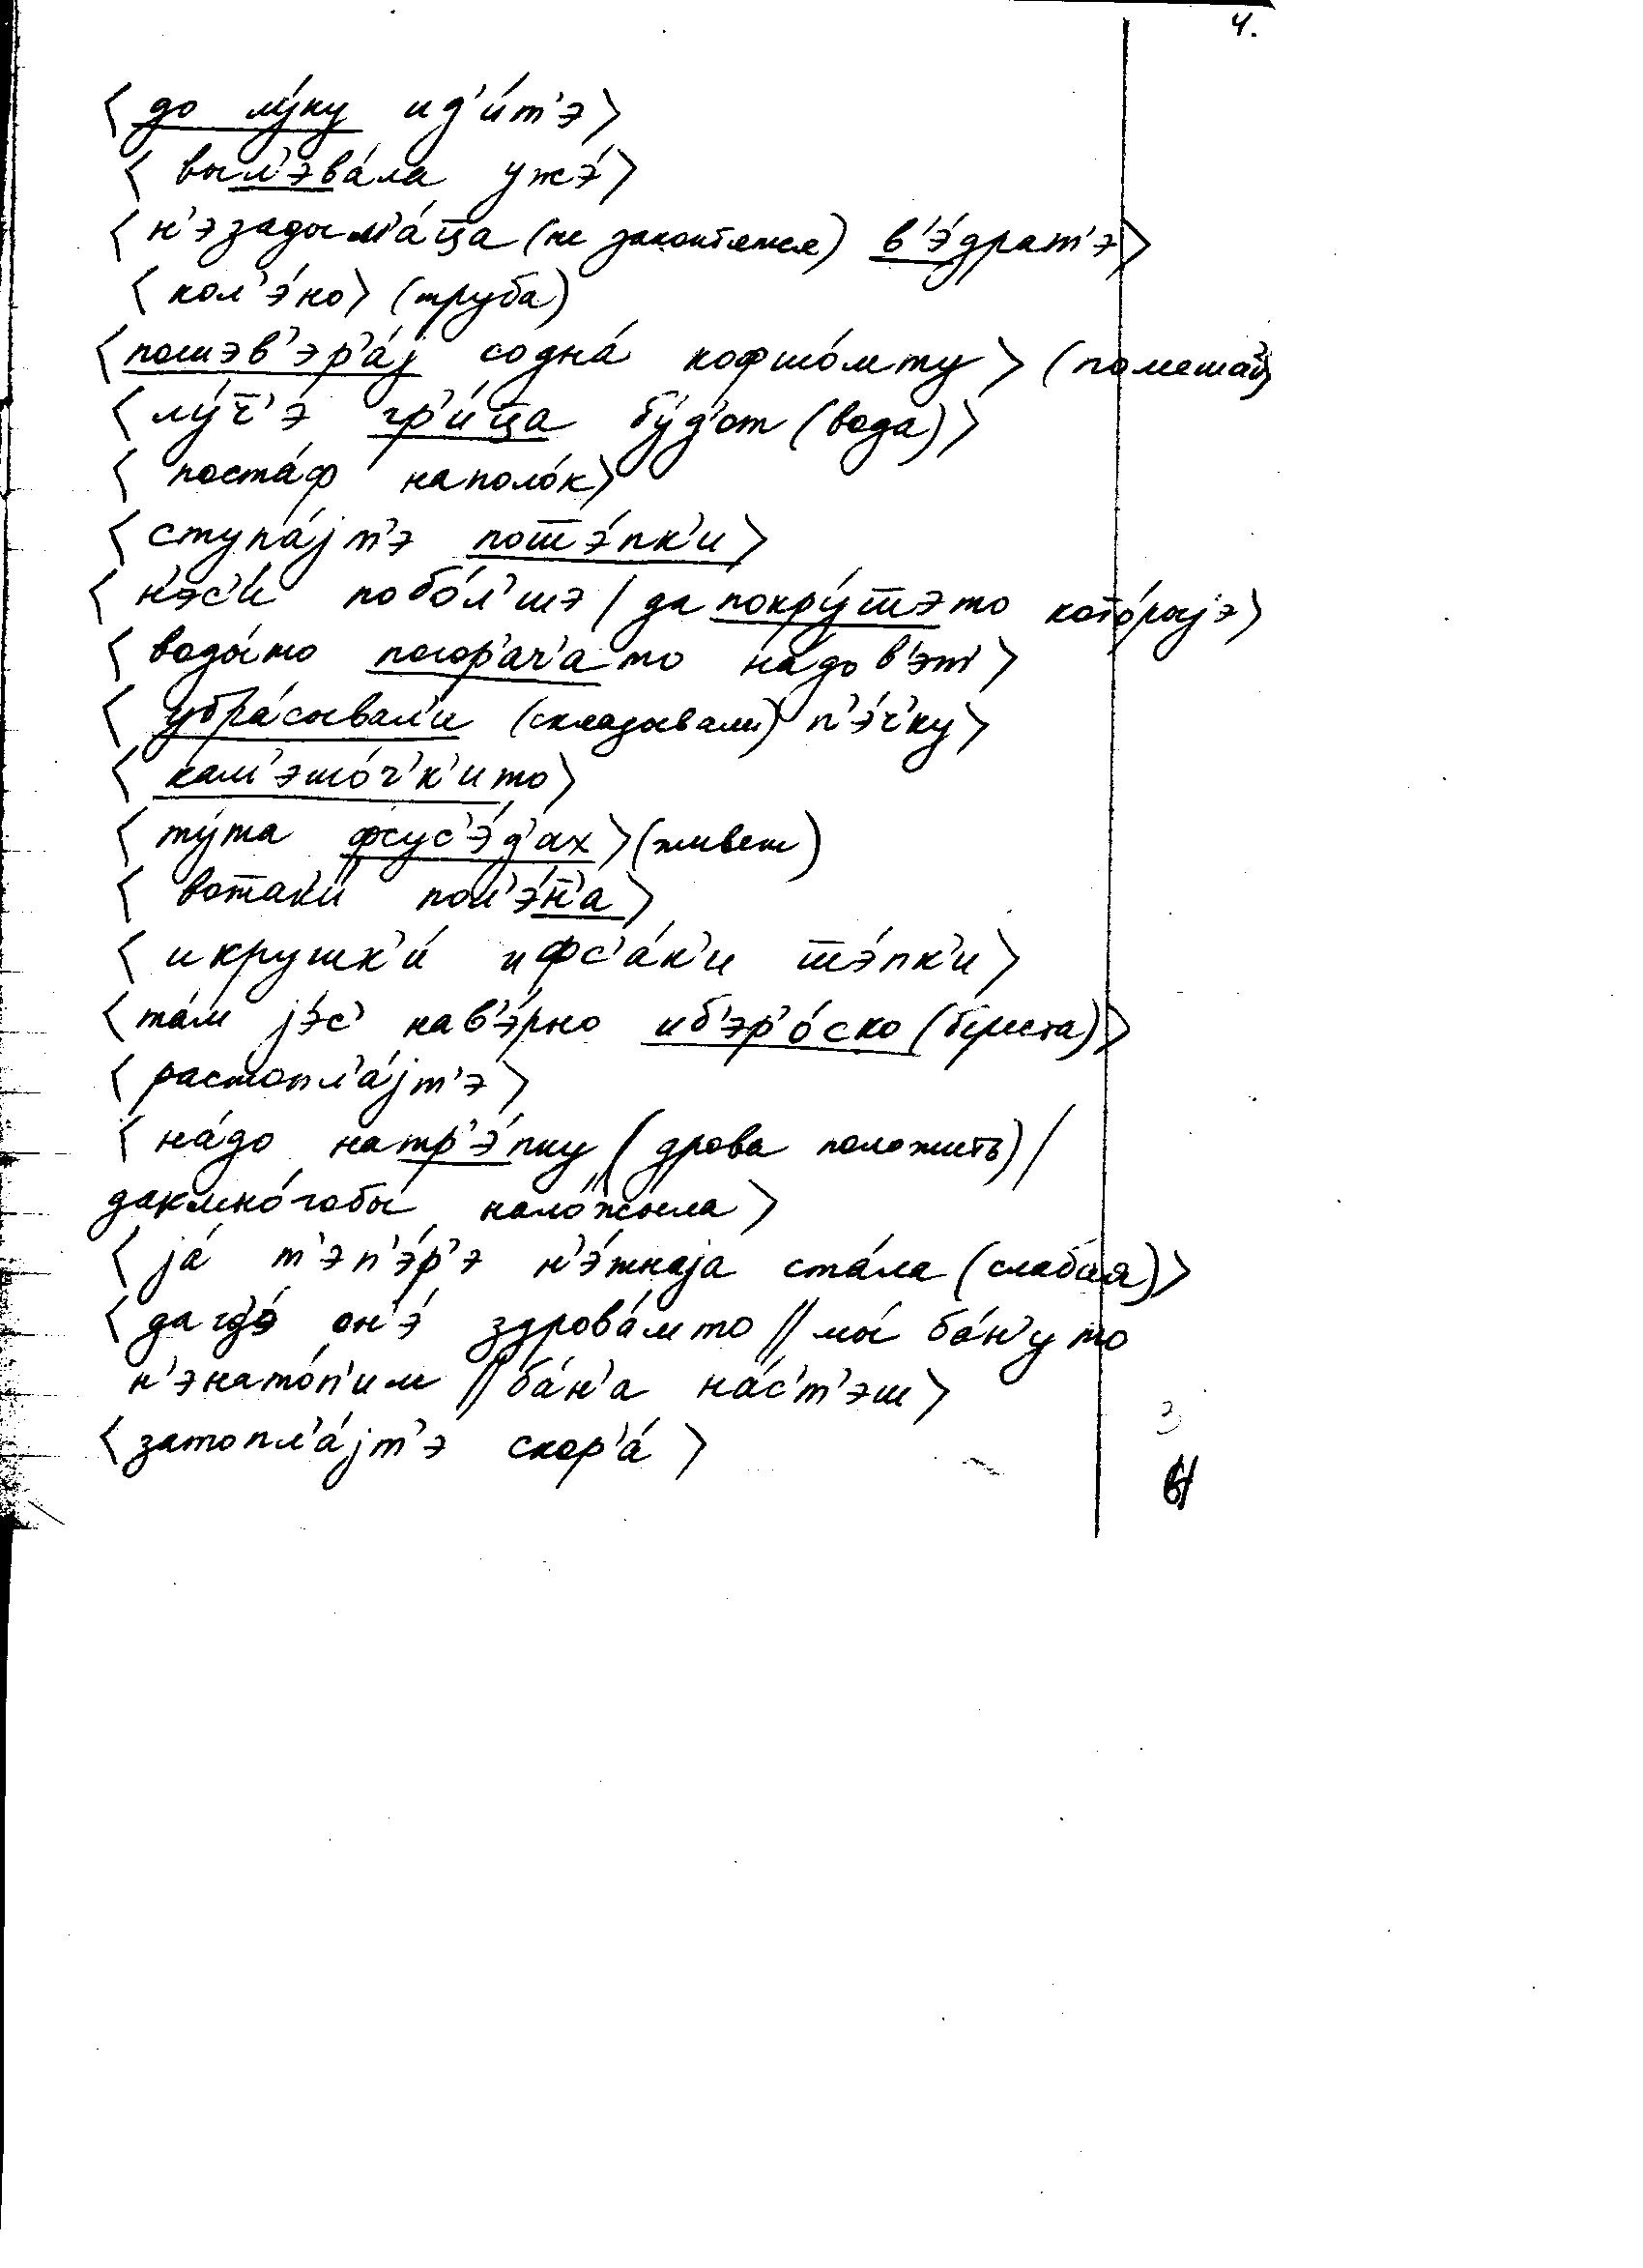 4.
⟨ до лу́ку ид'и́т'э⟩
⟨ выл'эва́ла ужэ́⟩
⟨ н'эзадымл'а́ц̄а (не закоптятся) в'э́драт'э⟩
⟨ кол'э́но⟩ (труба)
⟨пошэв'эр'а́ј содна́ кофшо́мту⟩ (помешай)
⟨ лу́ч̄'э гр'и́ц̄а бу́д'от (вода)⟩
⟨ поста́ф наполо́к⟩
⟨ ступа́јт'э пош̄э́пк'и⟩
⟨ н'эс'и́ побо́л'шэ / да покру́ш̄это кото́рыјэ⟩
⟨ воды́то погор'ач'а то на́до в'эт'⟩
⟨ убра́сывал'и (складывали) п'э́ч'ку⟩
⟨ кам'эшо́ч'к'ито⟩
⟨ ту́та фсус'э́д'ах⟩ (живет)
⟨ вот̄ак'и́ пол'э́н̄'а⟩
⟨ икрушк'и́ ифс'а́к'и ш̄э́пк'и⟩
⟨ та́м јэ́с' нав'э́рно иб'эр'о́ско (береста)⟩
⟨ растопл'а́јт'э⟩
⟨ на́до натр'э́пку (дрова положить) /
дакмно́гобы нало́жыла⟩
⟨ ја́ т'эп'э́р'э н'э́жнаја ста́ла (слабая)⟩
⟨ да гд'э́ он'э́ здрова́мто // мы́ ба́н'у то
н'энато́п'им // ба́н'а на́с'т'эш⟩
⟨ затопл'а́јт'э скор'а́ ⟩
3